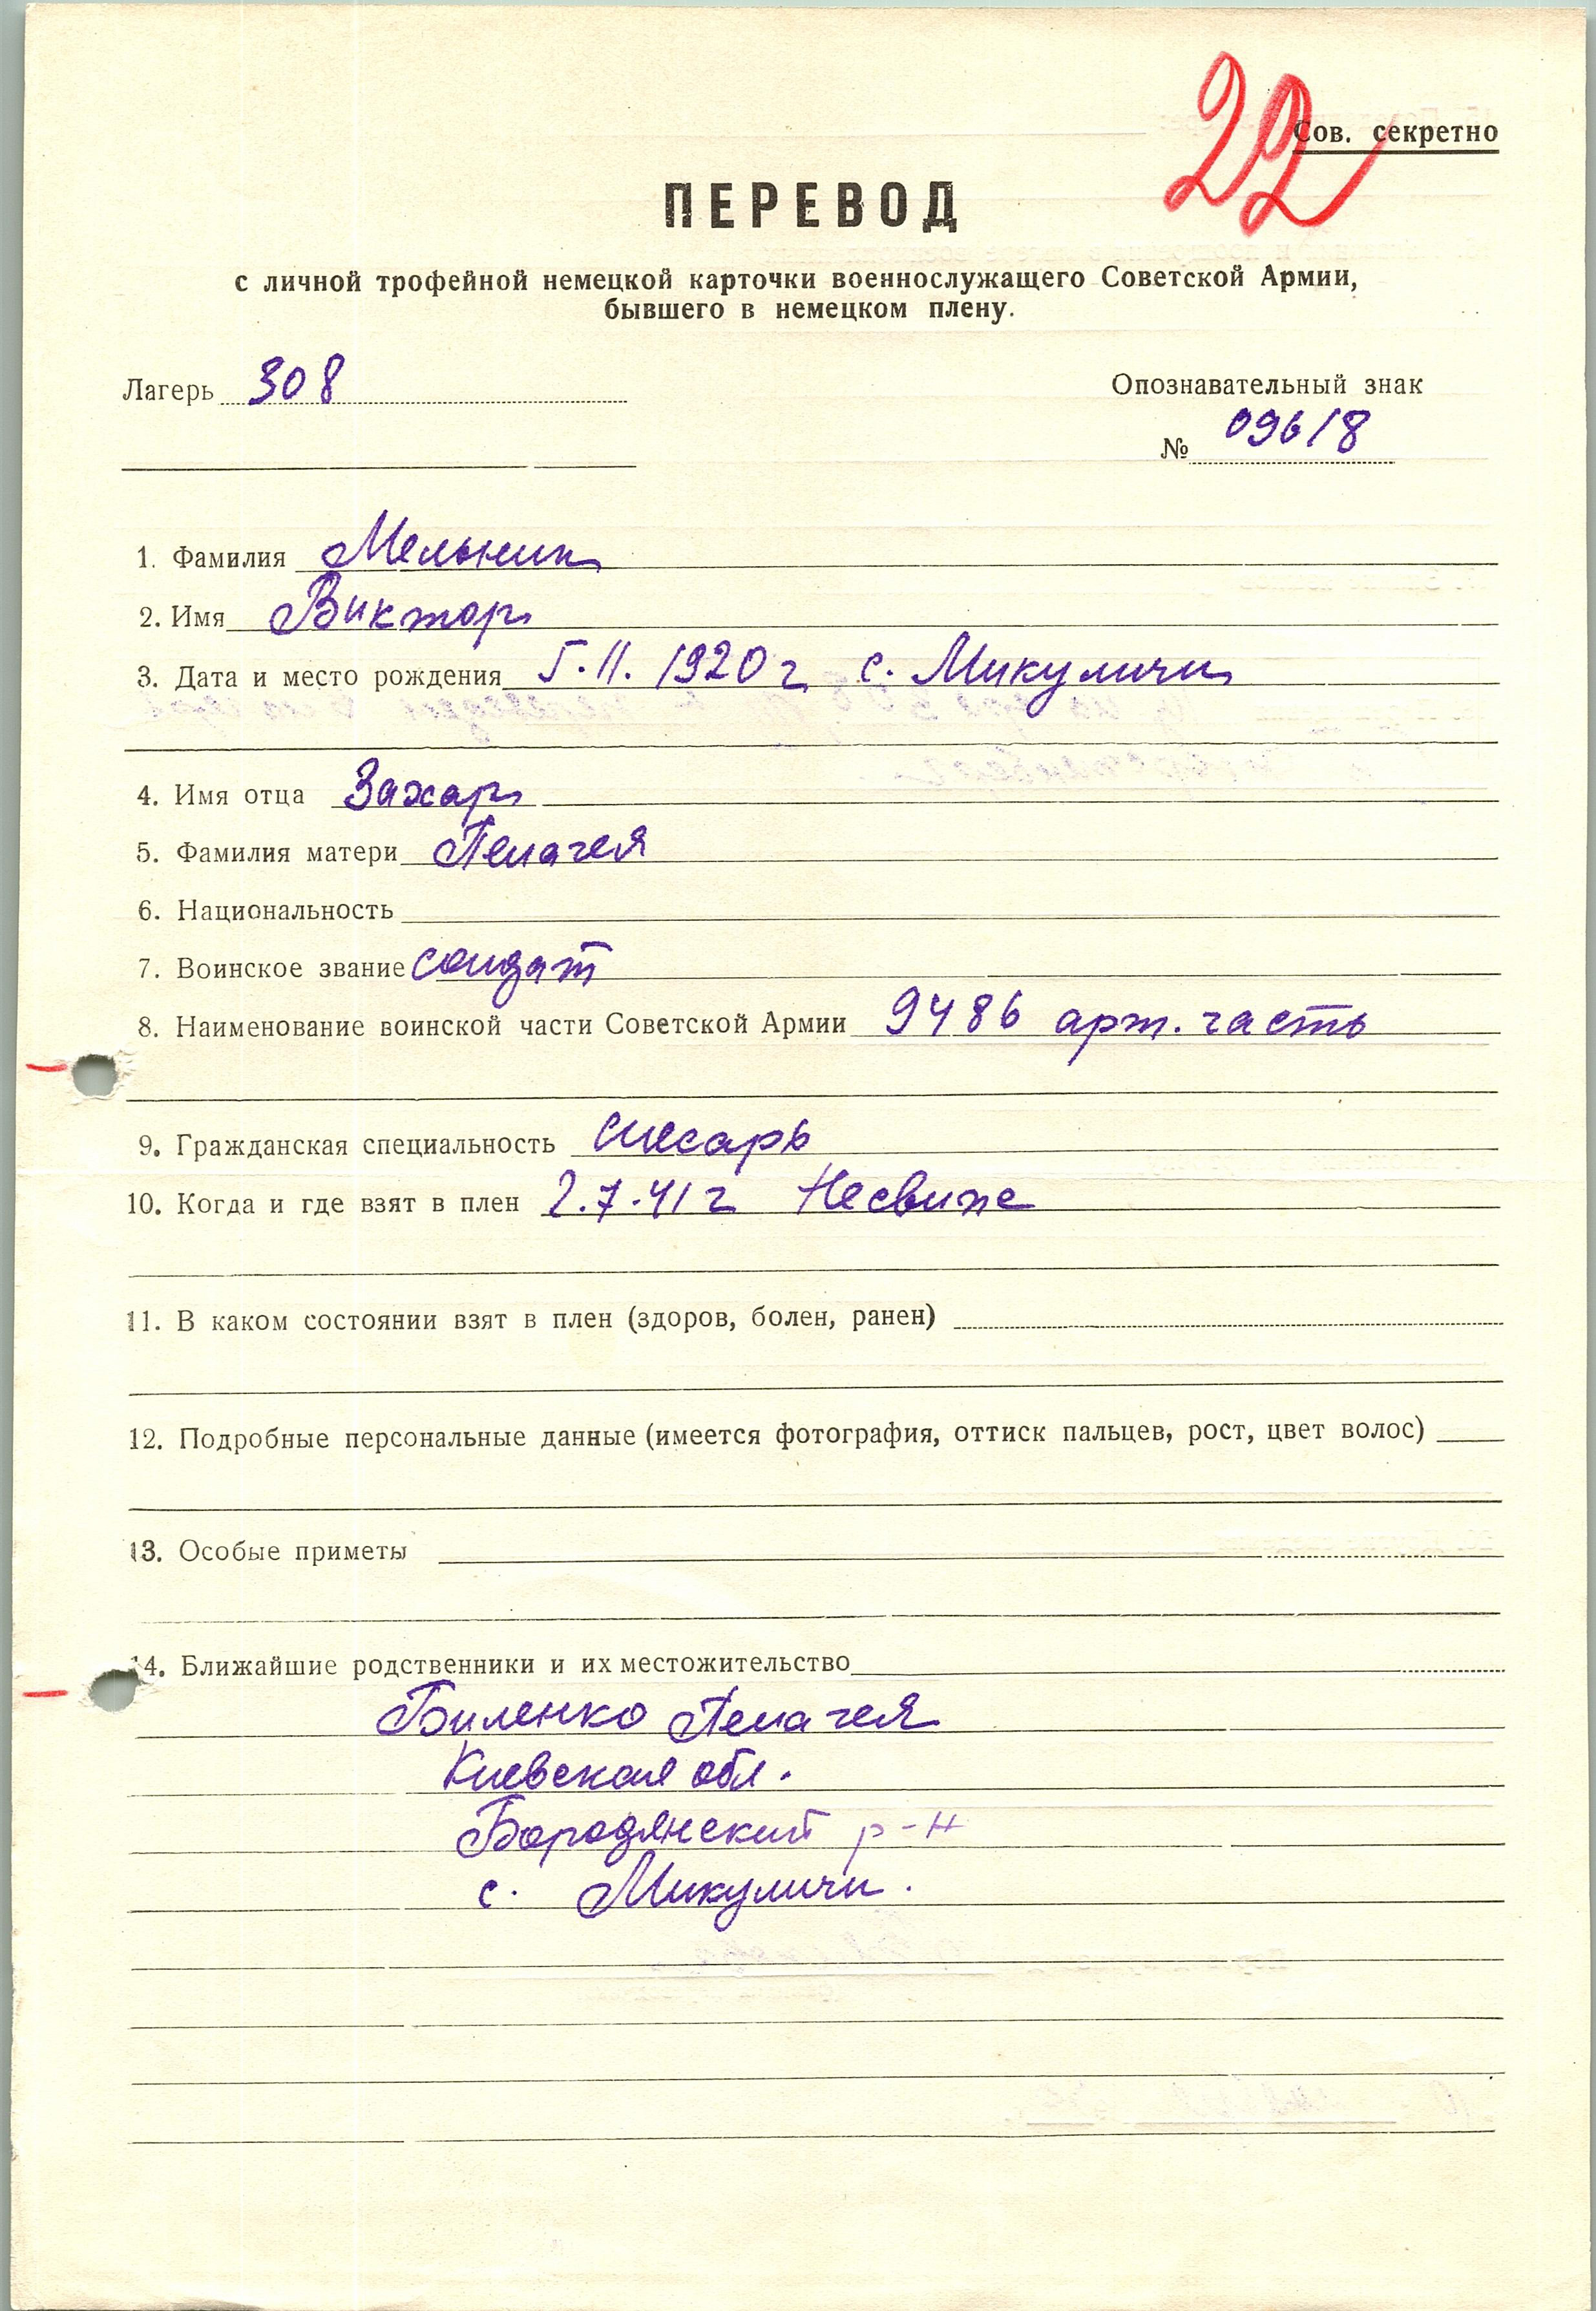 22
Сов. секретно
ПЕРЕВОД
с личной трофейной немецкой карточки военнослужащего Советской Армии,
бывшего в немецком плену.
Лагерь 308
Опознавательный знак
№ 09618
1. Фамилия Мельник
2. Имя Виктор
3. Дата и место рождения 5.11.1920 г с. Микуличи
4. Имя отца Захар
5. Фамилия матери Пелагея
6. Национальность
7. Воинское звание солдат
8. Наименование воинской части Советской Армии 9486 арт. часть
9. Гражданская специальность слесарь
10. Когда и где взят в плен 2.7.41 г Несвиже
11. В каком состоянии взят в плен (здоров, болен, ранен)
12. Подробные персональные данные (имеется фотография, оттиск пальцев, рост, цвет волос)
13. Особые приметы
14. Ближайшие родственники и их местожительство
Биленко Пелагея
Киевская обл.
Бородянский р-н
с. Микуличи.